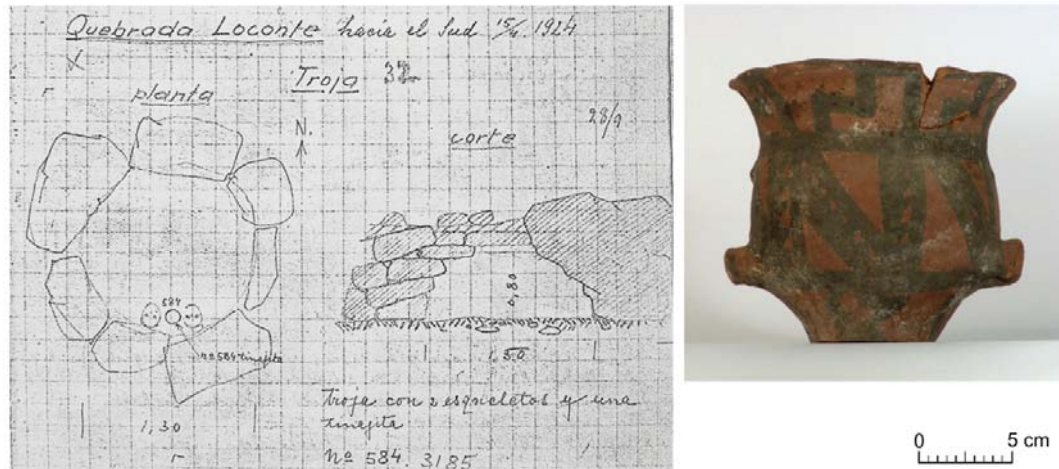 Quebrada Loconte hacia el Sud 15/4. 1924
Troja 32
planta
N.
28/9
corte
584
nº 584 tinajita
0,80
1,50
1,30
Troja con 2 esqueletos y una
tinajita
Nº 584. 3185
0 5 cm